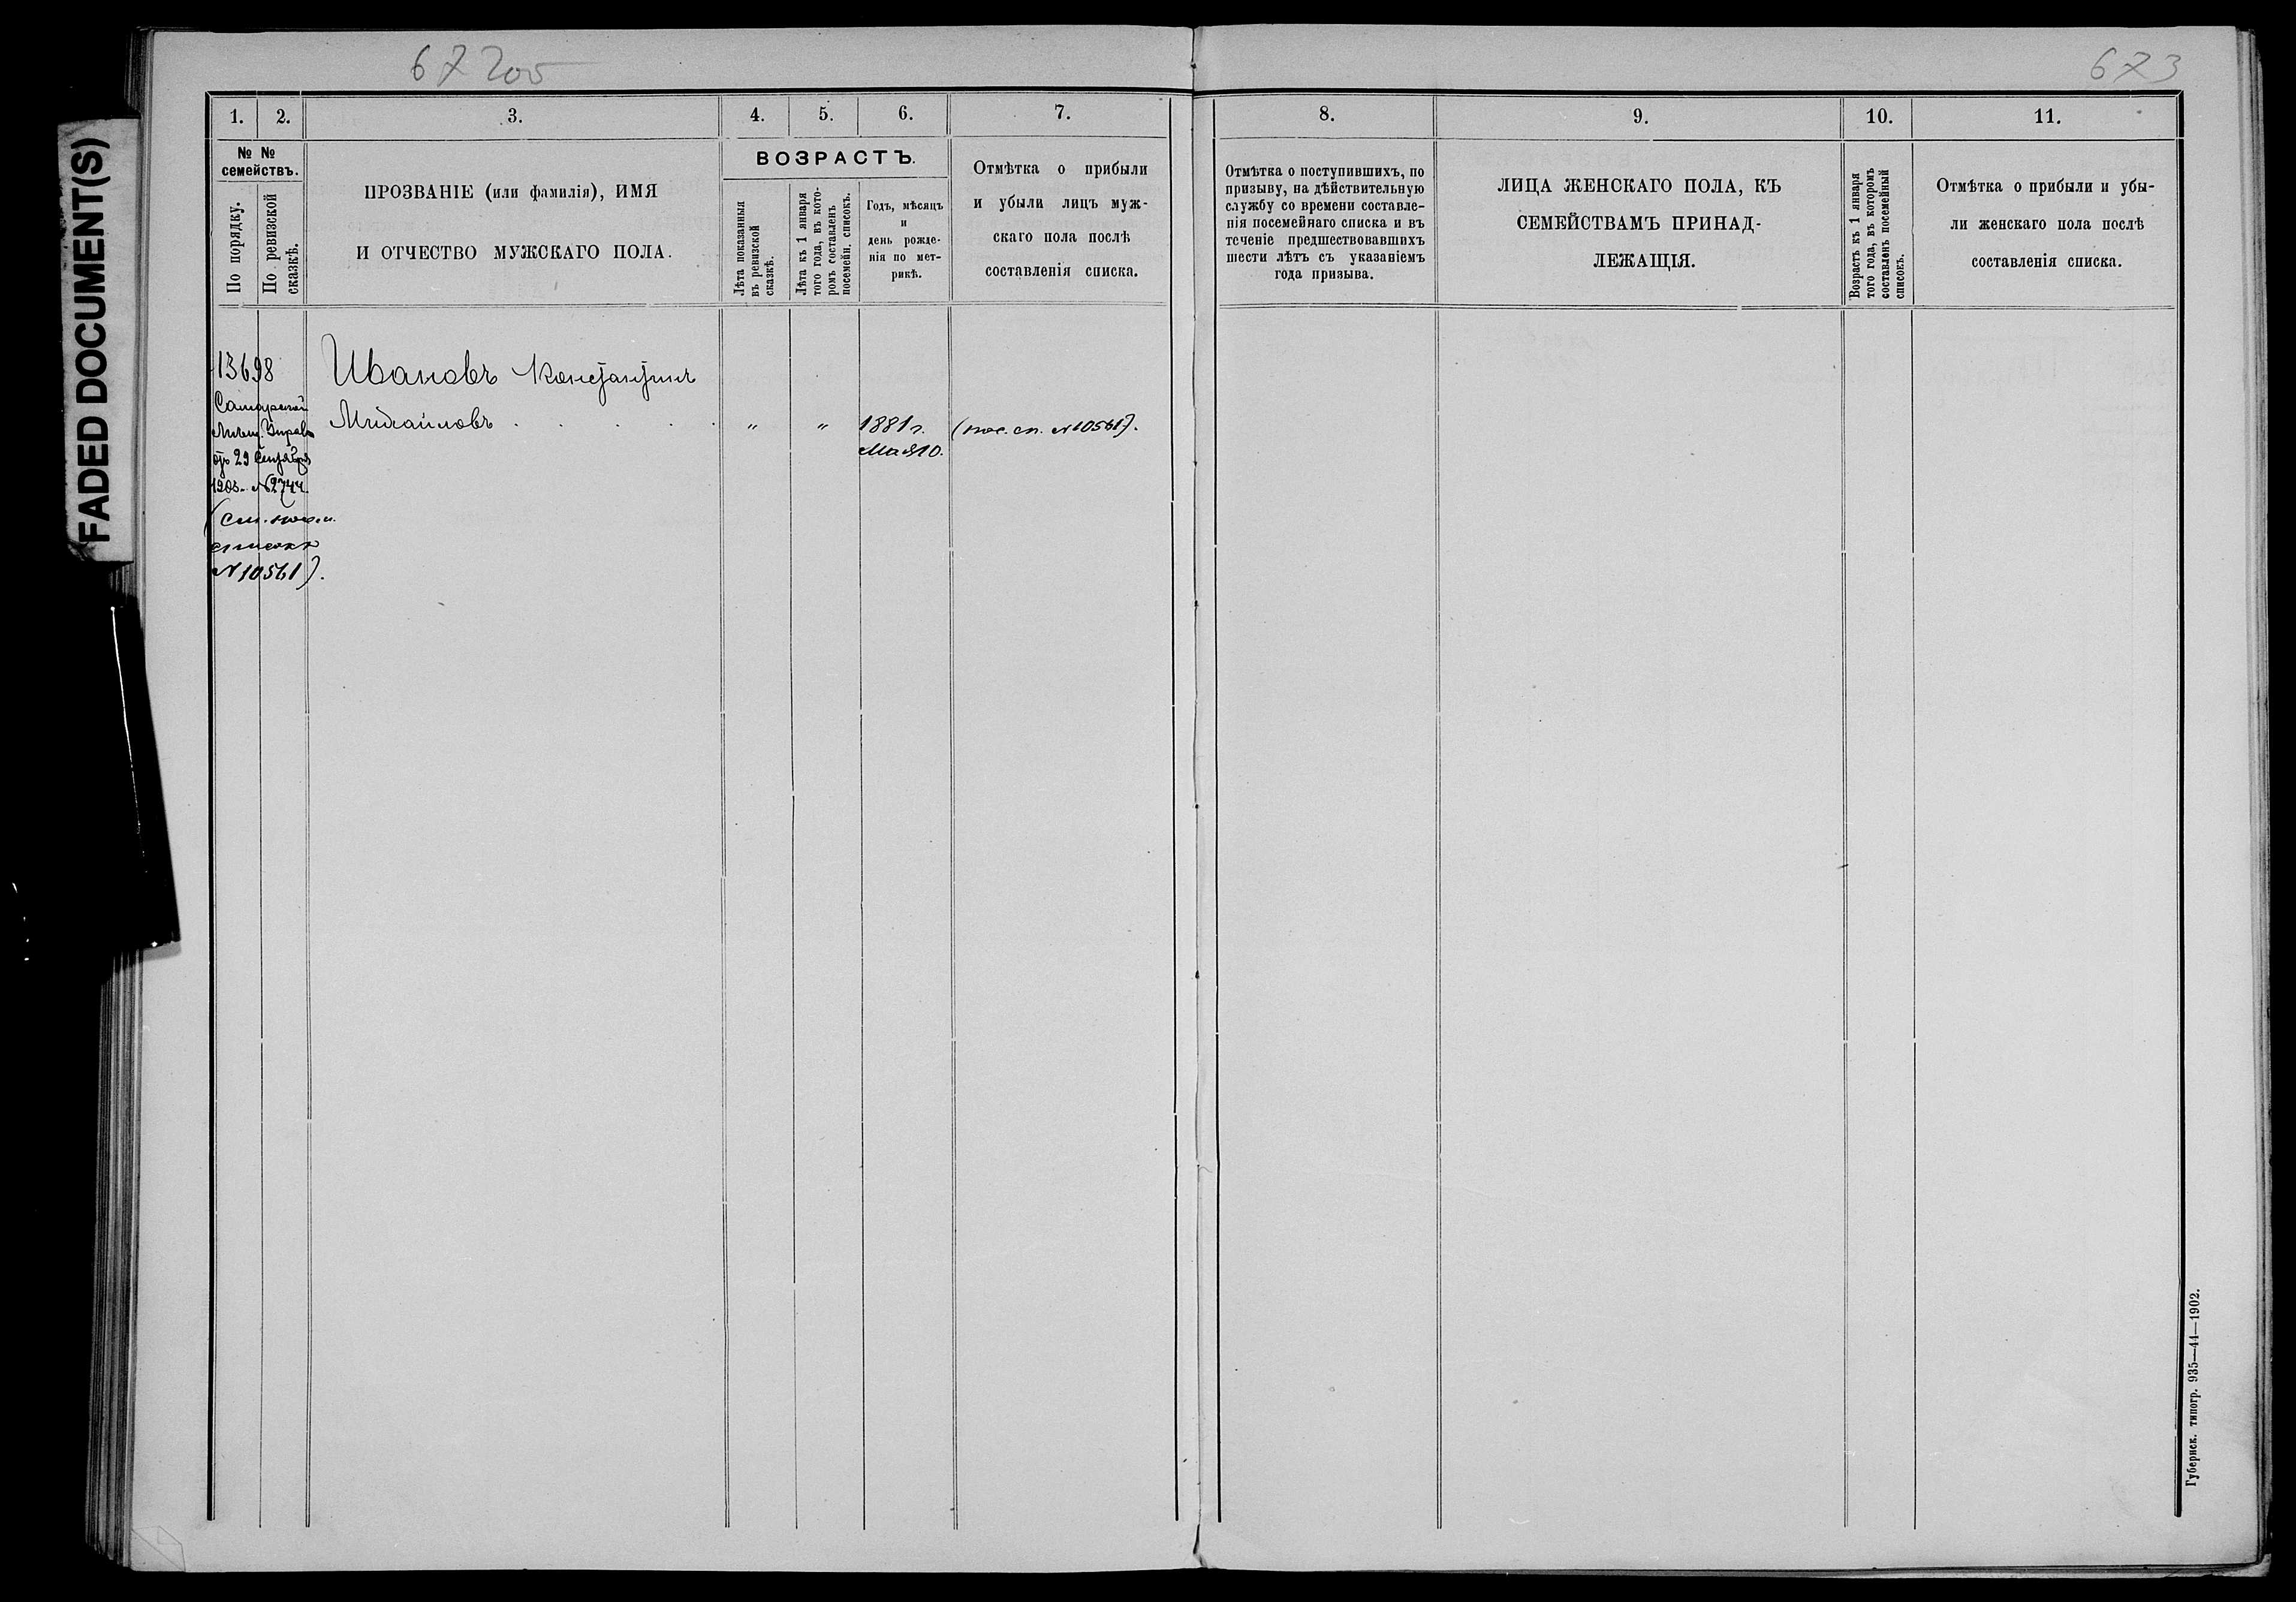 FADED DOCUMENT(S)
67 2об
673
1.
2.
3.
4.
5.
6.
7.
8.
9.
10.
11.
№ №
семействъ.
По порядку.
По ревизской
сказкѣ.
ПРОЗВАНІЕ (или фамилія), ИМЯ
И ОТЧЕСТВО МУЖСКАГО ПОЛА.
ВОЗРАСТЪ.
Лѣта показанныя
въ ревизской
сказкѣ.
Лѣта къ 1 января
того года, въ кото-
ромъ составленъ
посемейн. списокъ.
Годъ, мѣсяцъ
и
день рожде-
нія по мет-
рикѣ.
Отмѣтка о прибыли
и убыли лицъ муж-
скаго пола послѣ
составленія списка.
Отмѣтка о поступившихъ, по
призыву, на дѣйствительную
службу со времени составле-
нія посемейнаго списка и въ
теченіе предшествовавшихъ
шести лѣтъ съ указаніемъ
года призыва.
ЛИЦА ЖЕНСКАГО ПОЛА, КЪ
СЕМЕЙСТВАМЪ ПРИНАД-
ЛЕЖАЩІЯ.
Возрастъ къ 1 января
того года, въ которомъ
составленъ посемейный
списокъ.
Отмѣтка о прибыли и убы-
ли женскаго пола послѣ
составленія списка.
13698
Самарской
Мѣщ. Управ
отъ 29 Сентября
1903. №2744.
(См. посем.
списокъ
№10561).
Ивановъ Константинъ
Михайловъ . . . . .
"
"
1881 г.
Мая 10.
(пос. сп. №10561).
Губернск. типогр. 935—44—1902.